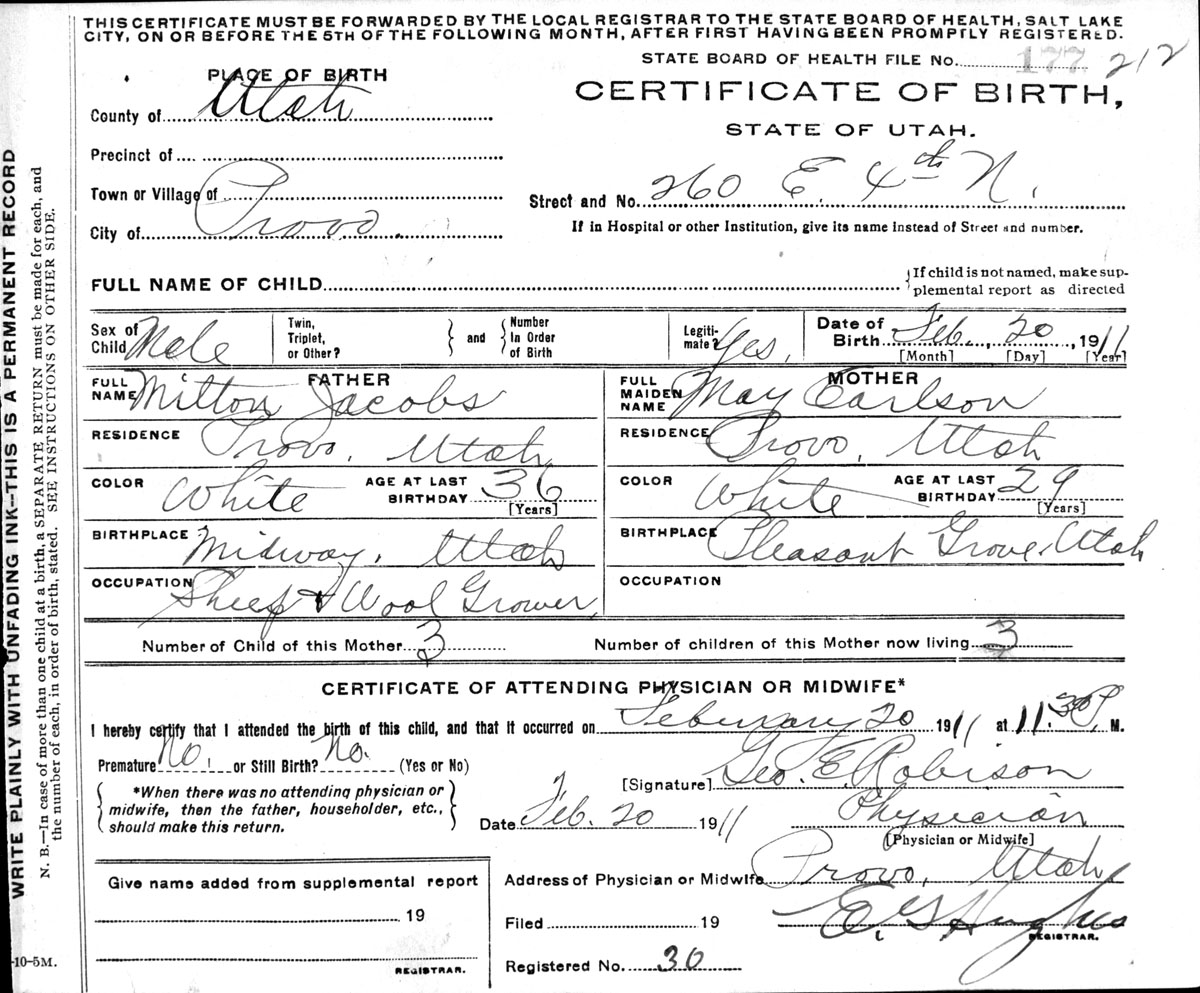 THIS CERTIFICATE MUST BE FORWARDED BY THE LOCAL REGISTRAR TO THE STATE BOARD OF HEALTH, SALT LAKE
CITY, ON OR BEFORE THE 5TH OF THE FOLLOWING MONTH, AFTER FIRST HAVING BEEN PROMPTLY REGISTERED.
STATE BOARD OF HEALTH FILE No. 177 212
PLACE OF BIRTH
CERTIFICATE OF BIRTH,
STATE OF UTAH.
County of Utah
Precinct of
Town or Village of
City of Provo.
Street and No. 260 E. 4th N.
If in Hospital or other Institution, give its name instead of Street and number.
FULL NAME OF CHILD
If child is not named, make sup-
plemental report as directed
Sex of Child Male
Twin, Triplet, or Other? and Number In Order of Birth
Legiti- mate? Yes,
Date of Birth Feb., 20, 1911
[Month] [Day] [Year]
FATHER
FULL NAME Milton Jacobs
MOTHER
FULL MAIDEN NAME May Carlson
RESIDENCE Provo, Utah
RESIDENCE Provo, Utah
COLOR White AGE AT LAST BIRTHDAY 36 [Years]
COLOR White AGE AT LAST BIRTHDAY 29 [Years]
BIRTHPLACE Midway, Utah
BIRTHPLACE Pleasant Grove, Utah
OCCUPATION Sheep & Wool Grower,
OCCUPATION
Number of Child of this Mother 3
Number of children of this Mother now living 3
CERTIFICATE OF ATTENDING PHYSICIAN OR MIDWIFE*
I hereby certify that I attended the birth of this child, and that it occurred on February 20 1911 at 11:30 P. M.
Premature No. or Still Birth? No. (Yes or No)
*When there was no attending physician or
midwife, then the father, householder, etc.,
should make this return.
[Signature] Geo. E. Robison
Date Feb. 20 1911
Physician
[Physician or Midwife]
Give name added from supplemental report
19
REGISTRAR.
Address of Physician or Midwife Provo, Utah
Filed 19
E. G. Hughes
REGISTRAR.
Registered No. 30
WRITE PLAINLY WITH UNFADING INK--THIS IS A PERMANENT RECORD
N. B.—In case of more than one child at a birth, a SEPARATE RETURN must be made for each, and
the number of each, in order of birth, stated. SEE INSTRUCTIONS ON OTHER SIDE.
-10-5M.